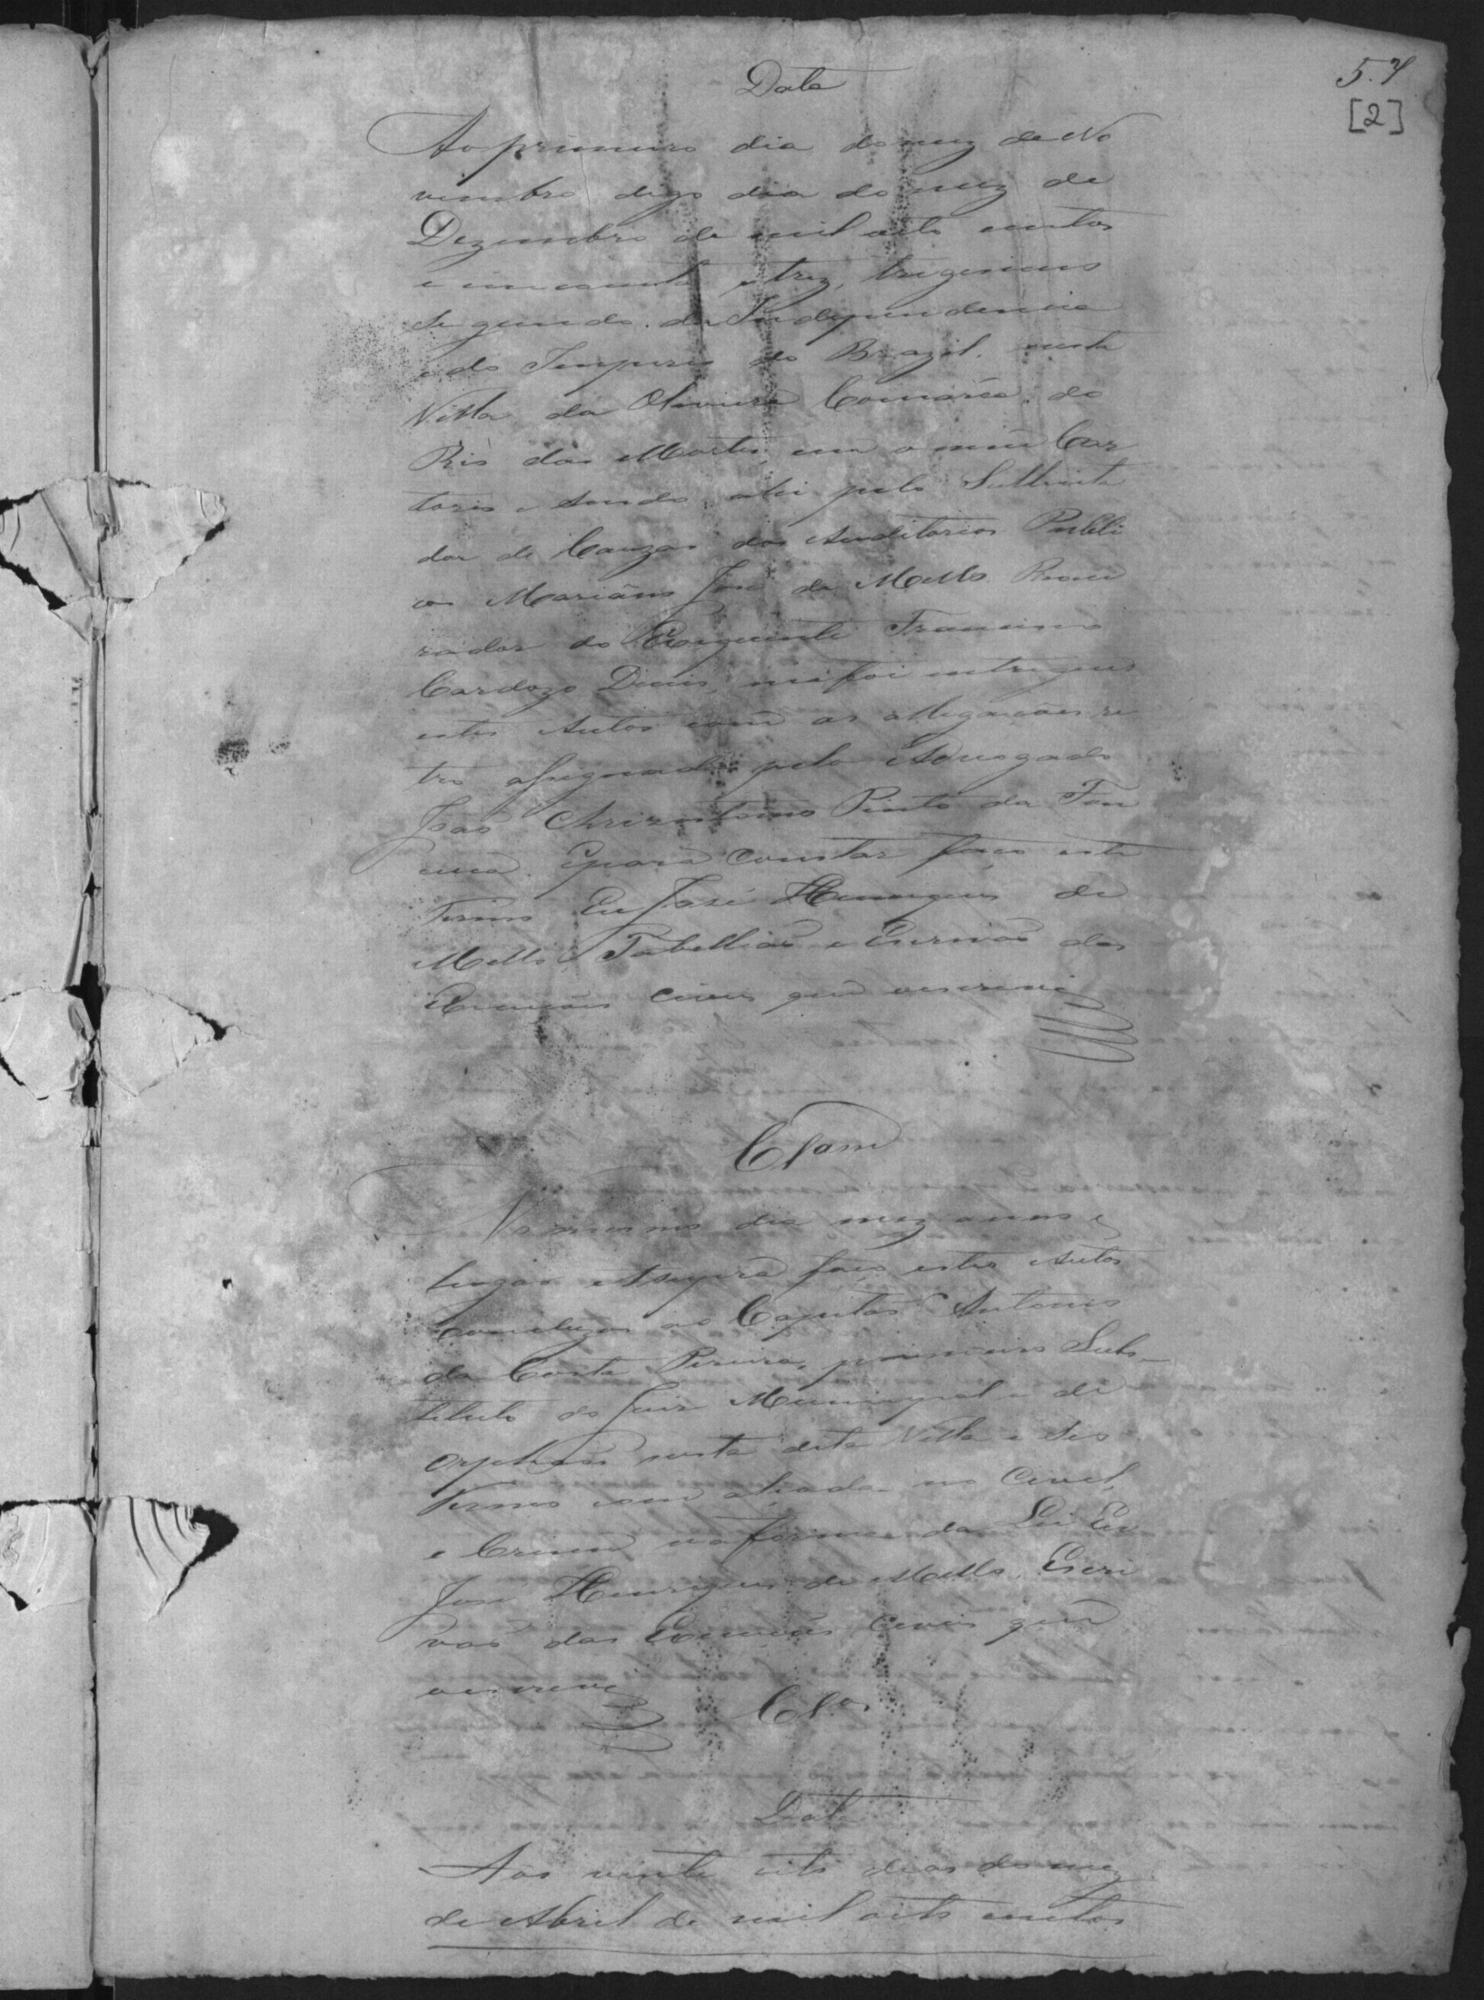 5.
[2]
Data
Ao primeiro dia do mez de No
vembro digo dia do mez de
Dezembro de mil oito centos
e cincoenta e trez, trigesimo
segundo da Independencia
e do Imperio do Brazil. nesta
Villa da Oliveira Comarca do
Rio das Mortes, em o meu Car
torio e sendo ahi pelo Sollicita
dor de Cauzas dos Auditorios Publi
cos Marianno José de Mello Procu
rador do Exequente Francisco
Cardozo Diniz, me foi entregue
estes Autos com as allegaçoes re
tro assignada pelo Advogado
João Chrizostomo Pinto da Fon
ceca. Epara constar faço este
Termo Eu José Henriques de
Mello, Tabellião e Escrivão das
Execuções Civeis que oescrevi
Clsam
No mesmo dia mez anno e
lugar Retsupra faço estes Autos
Concluzos ao Capitão Antonio
da Costa Pereira, primeiro Subs-
tituto do Juiz Municipal e de
Orphãos nesta dita Villa e seo
Termo com alçada no Civel,
e Crime na forma da Lei Eu
José Henriques de Mello, Escri
vão das Execuções Civeis que
oescrevi
Clsos
Data
Aos vinte oito dias do mez
de Abril de mil oito centos